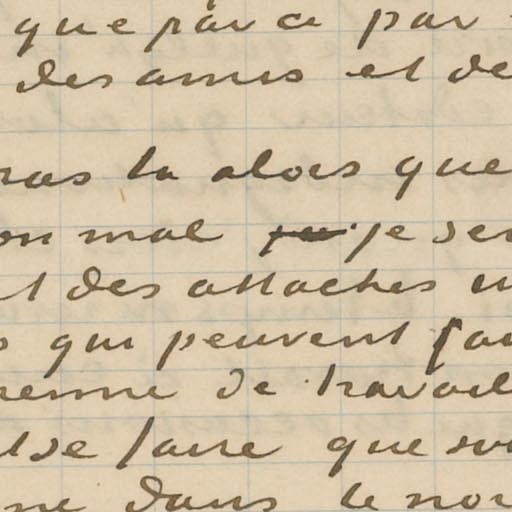 que par ce par
des amis et de
ras tu alors que
on mal je ser
t des attaches
qui peuvent fai
ienne de travail
t se faire que
ne dans le nor